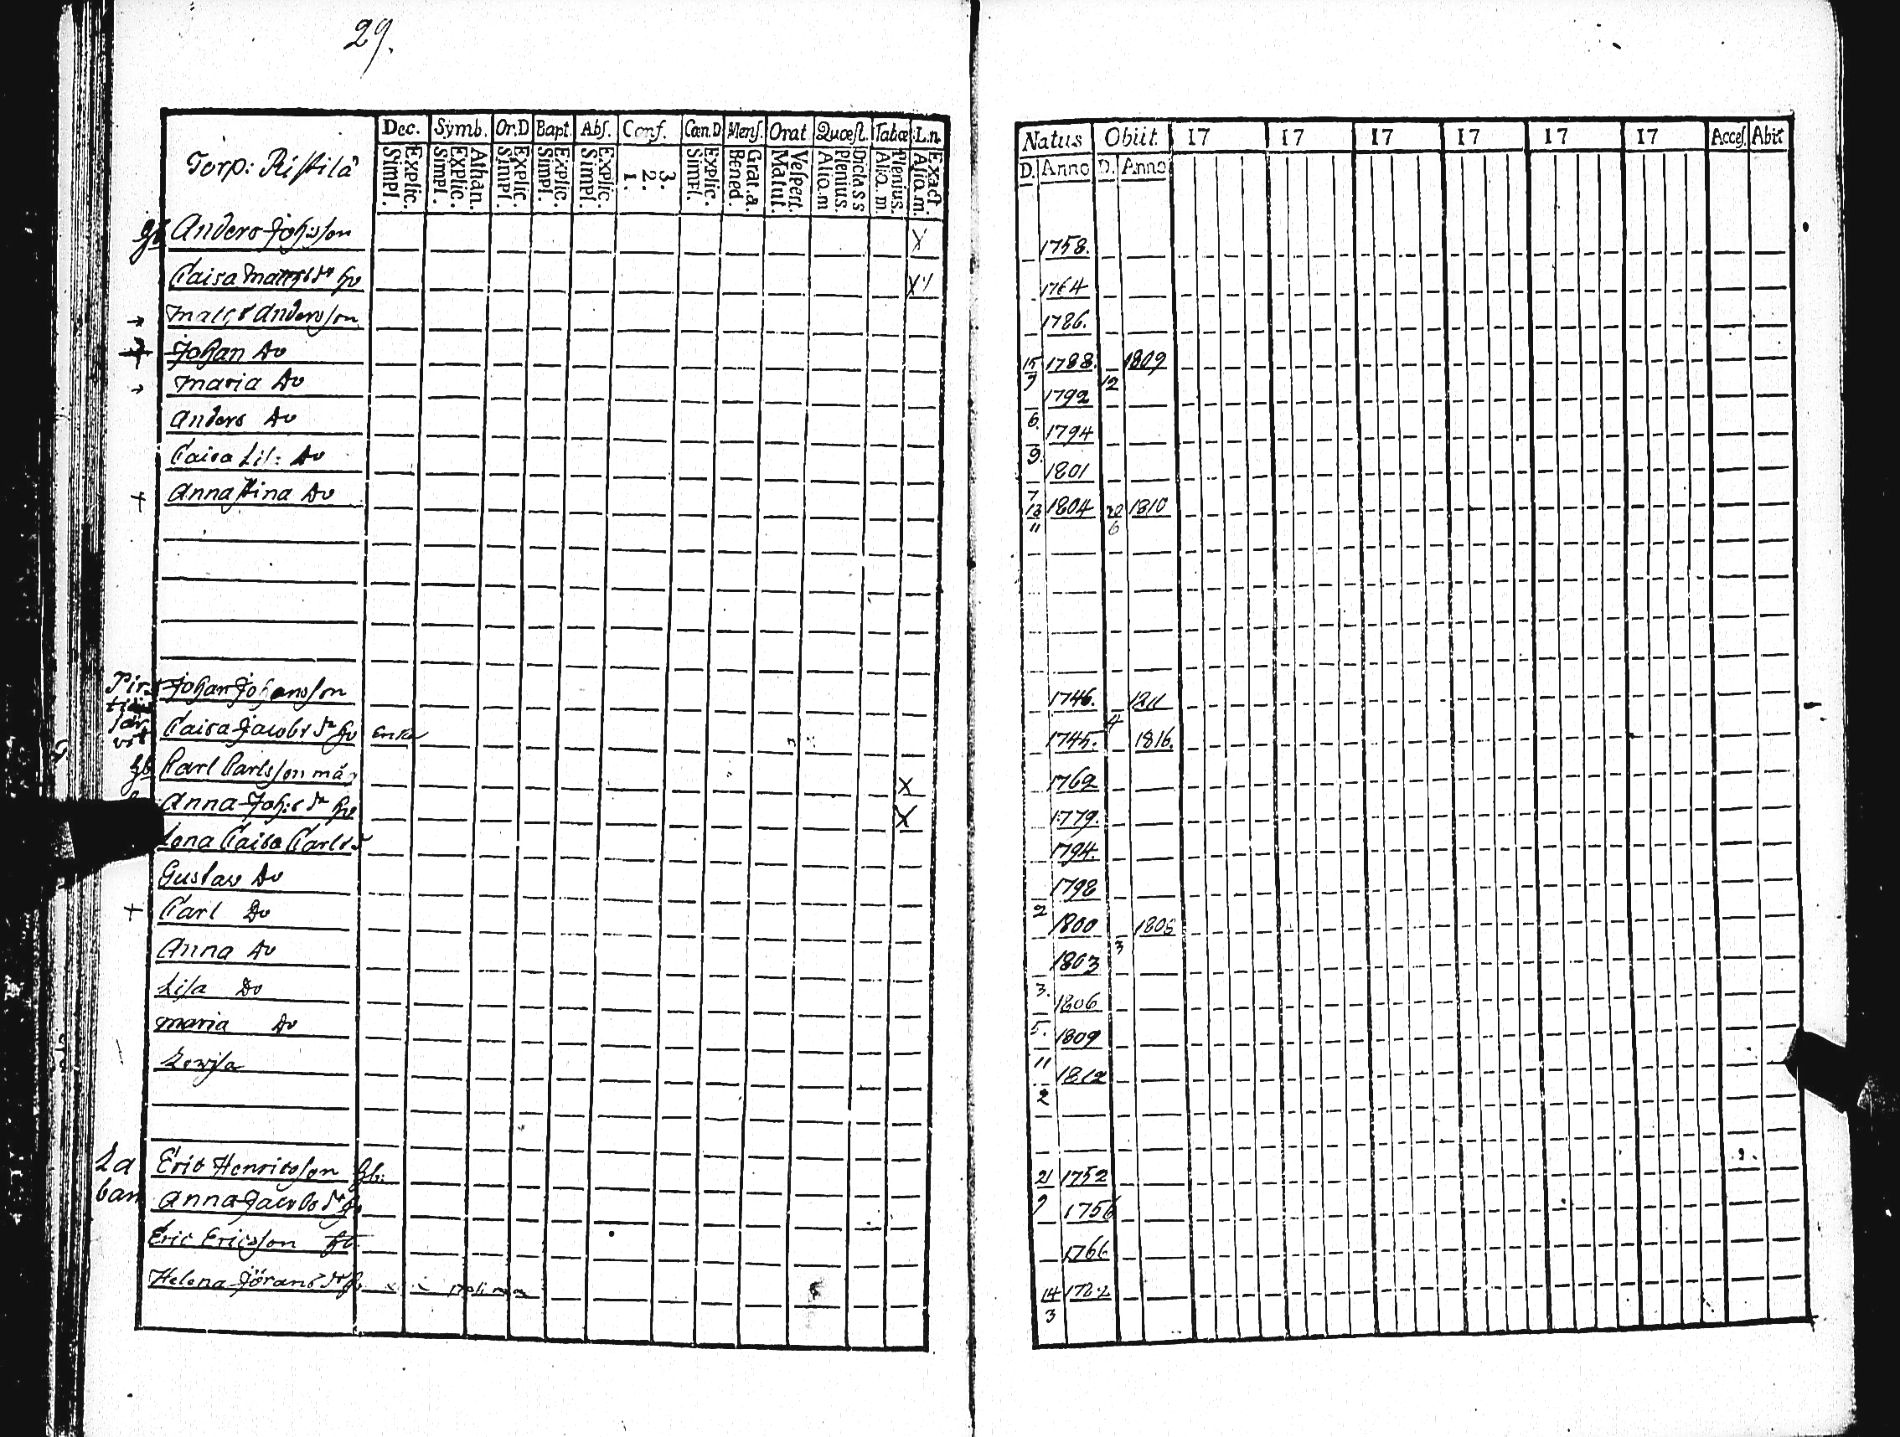 29.
Dec. Symb. Or.D Bapt. Abs. Conf. Cœn.D Mens. Orat Quæst. Tabæ L.n.
Torp: Ristilä
Explic. Simpl. Athan. Explic. Simpl. Explic. Simpl. Explic. Simpl. Explic. Simpl. 3. 2. 1. Explic. Simpl. Grat.a. Bened. Vespert. Matut. Dicta SS Plenius. Aliq.m Plenius. Aliq.m Exact Aliq.m.
Natus Obiit. 17 17 17 17 17 17 Acces. Abit
D. Anno D. Anno
Anders Johsson X 1758.
Caisa Matts dr hu X 1764
Matts Andersson 1786.
+ Johan Do 15/9 1788. 12 1809
Maria Do 1792
Anders Do 6. 1794
Caisa Lis: Do 9. 1801
+ Anna Stina Do 7 13/11 1804 20/6 1810
Johan Johansson 1746. 1811
Caisa Jacobs dr hu Enka 4 1745. 1816.
Carl Carlsson måg X 1762
Anna Johs dr hu X 1779.
Lena Caisa Carls 1794.
Gustav Do 1798
+ Carl Do 2 1800 1805
Anna Do 3 1803
Lisa Do 3. 1806
Maria Do 5. 1809
Lowisa 11 1812
2
La
ban
Eric Henricsson hb: 21/9 1752
Anna Jacobs dr hu 1756
Eric Ericsson 1766
Helena Jörans dr hu 14/3